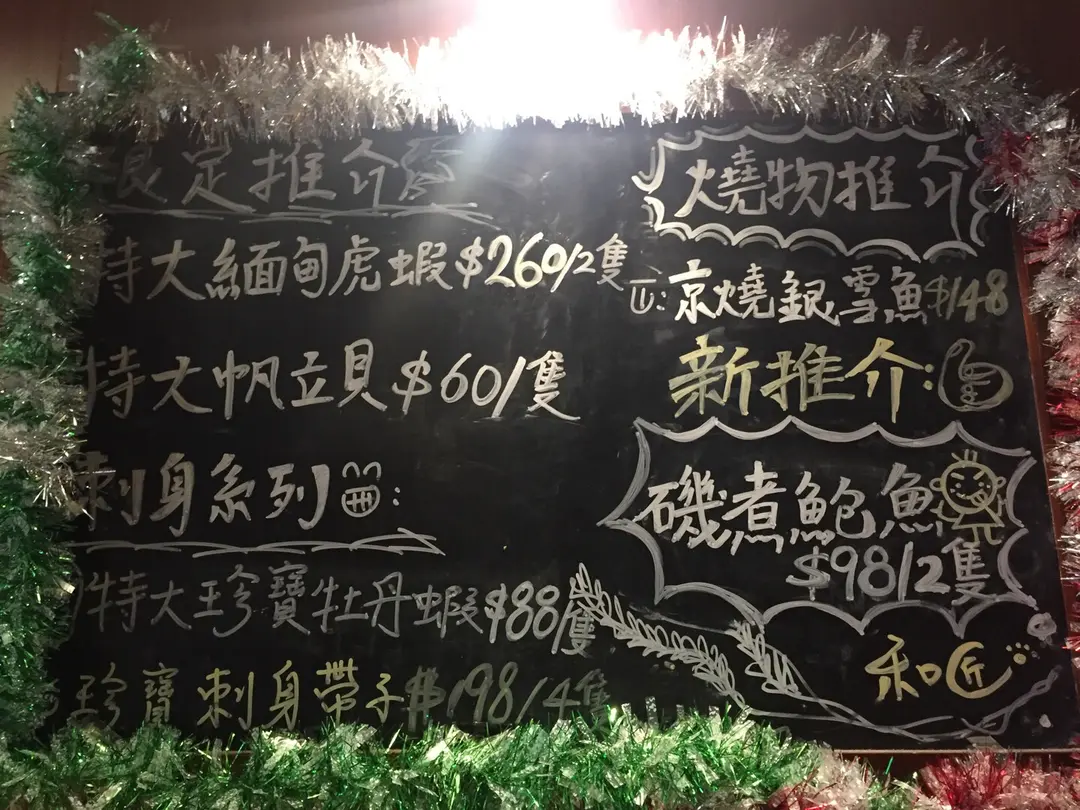 限定推介
特大緬甸虎蝦$260/2隻
特大帆立貝$60/隻
刺身系列:
特大珍寶牡丹蝦$88/隻
珍寶刺身帶子$198/4隻
燒物推介
京燒銀雪魚$148
新推介:
磯煮鮑魚
$98/2隻
和匠